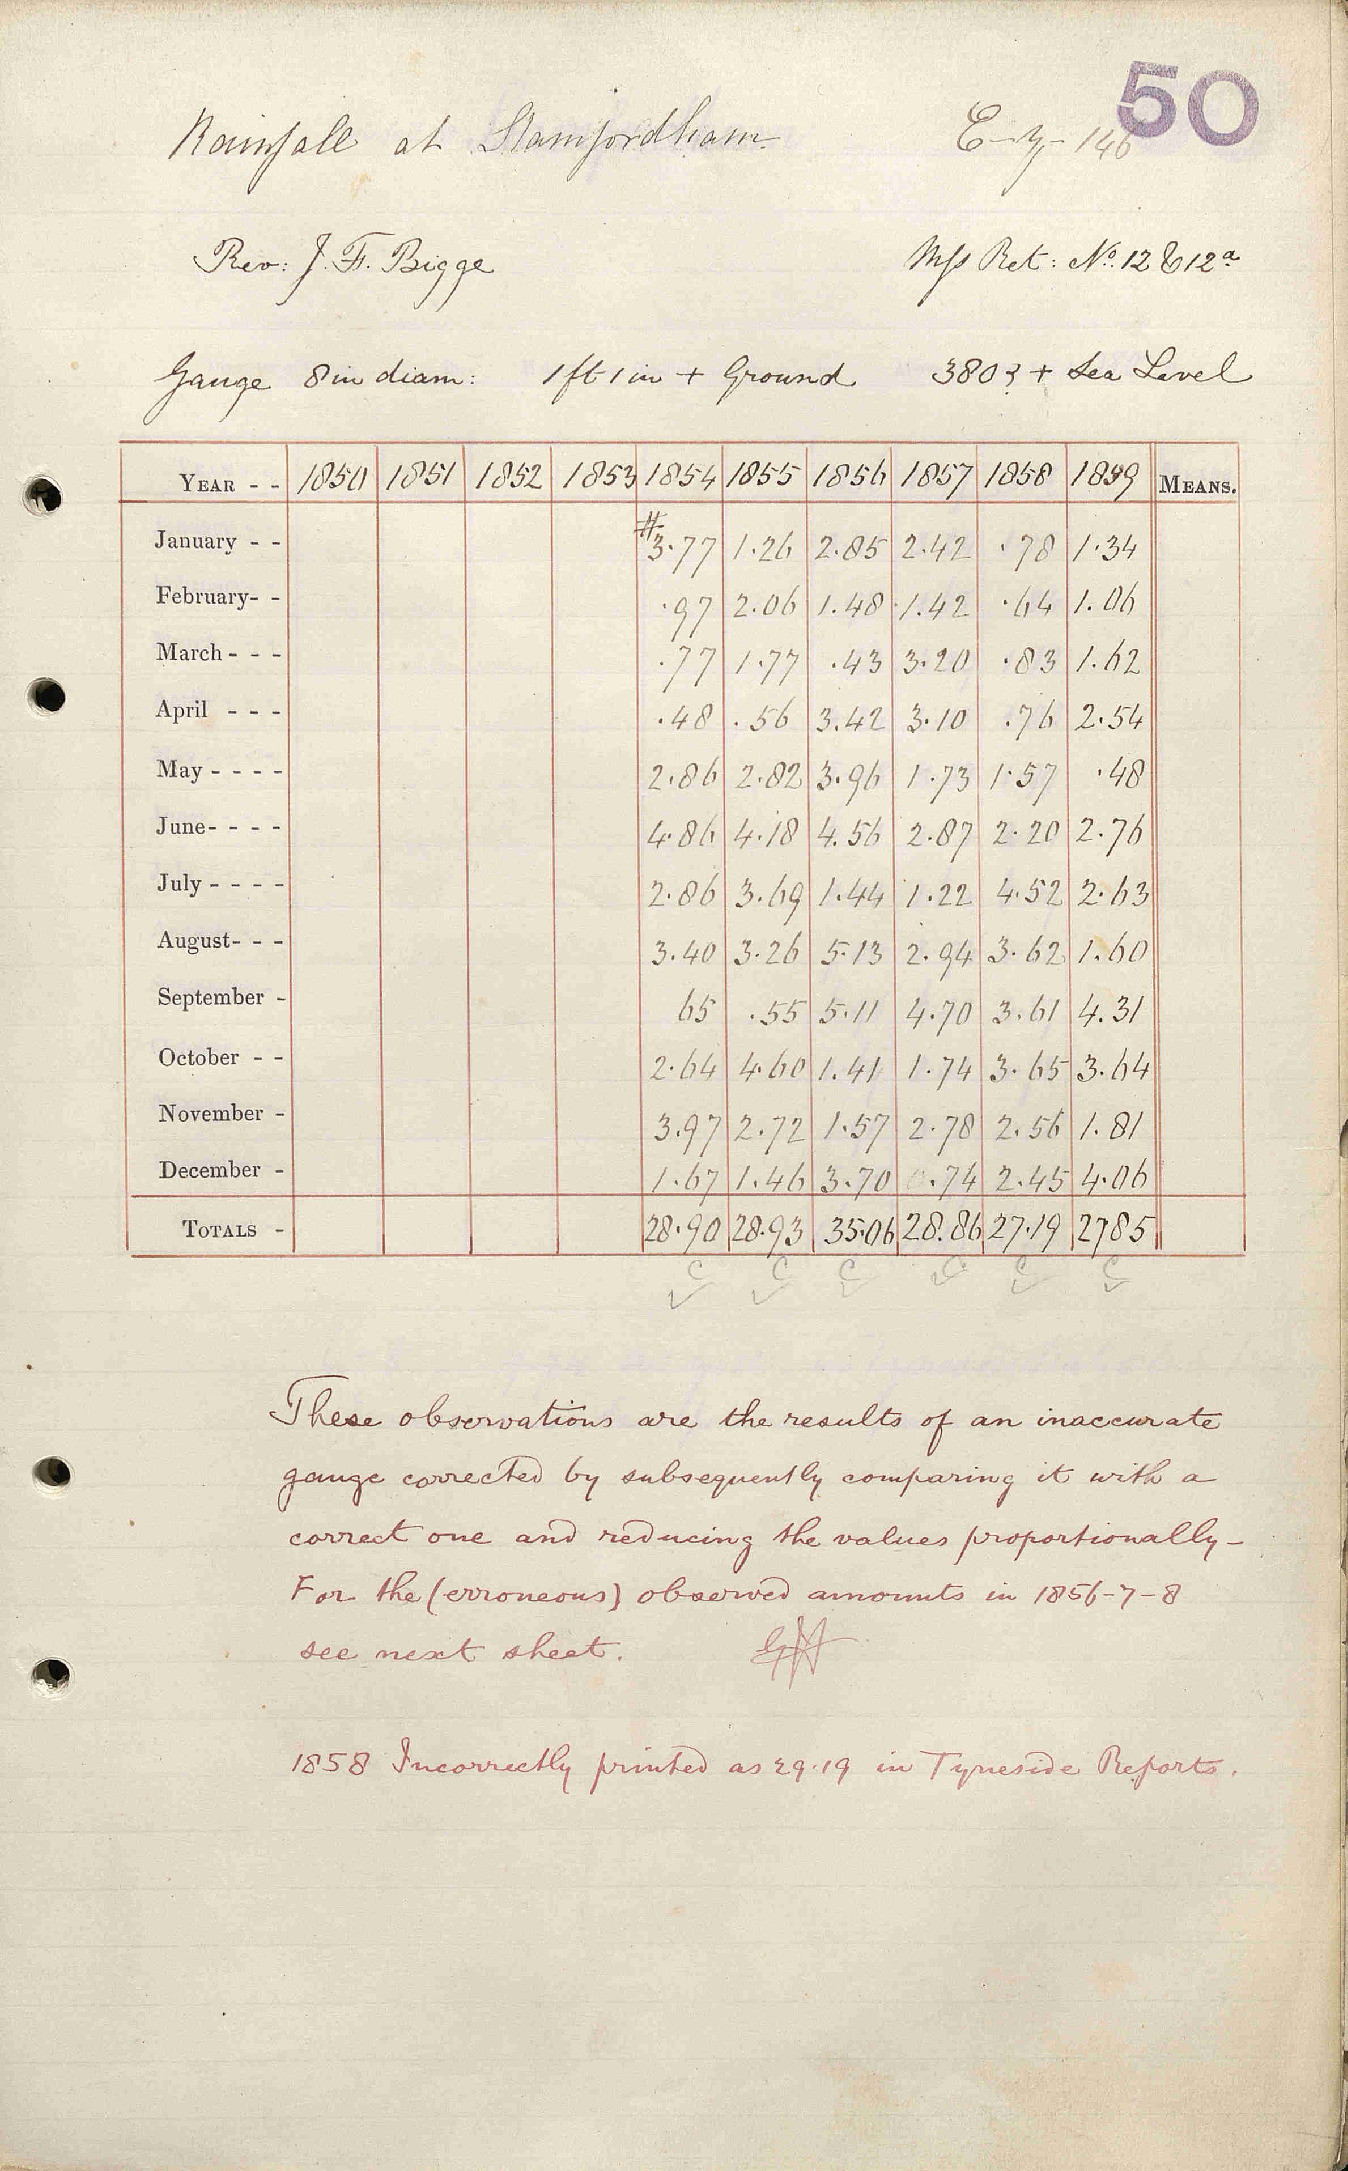 50
Rainfall at Stamfordham
Rev: J. F. Bigge Mss Ret: No. 12 & 12a
Gauge 8 in diam: 1 ft 1 in + Ground 380? + Sea Level
YEAR - - 1850 1851 1852 1853 1854 1855 1856 1857 1858 1859 MEANS.
January - - #3.77 1.26 2.85 2.42 .78 1.34
February- - .97 2.06 1.48 1.42 .64 1.06
March - - - .77 1.77 .43 3.20 .83 1.62
April - - - .48 .56 3.42 3.10 .76 2.54
May - - - - 2.86 2.82 3.96 1.73 1.57 .48
June- - - - 4.86 4.18 4.56 2.87 2.20 2.76
July - - - - 2.86 3.69 1.44 1.22 4.52 2.63
August- - - 3.40 3.26 5.13 2.94 3.62 1.60
September - 65 .55 5.11 4.70 3.61 4.31
October - - 2.64 4.60 1.41 1.74 3.65 3.64
November - 3.97 2.72 1.57 2.78 2.56 1.81
December - 1.67 1.46 3.70 0.74 2.45 4.06
TOTALS - 28.90 28.93 35.06 28.86 27.19 2785
C C C C C C
These observations are the results of an inaccurate
gauge corrected by subsequently comparing it with a
correct one and reducing the values proportionally -
For the (erroneous) observed amounts in 1856-7-8
see next sheet.
1858 Incorrectly printed as 29.19 in Tyneside Reports.